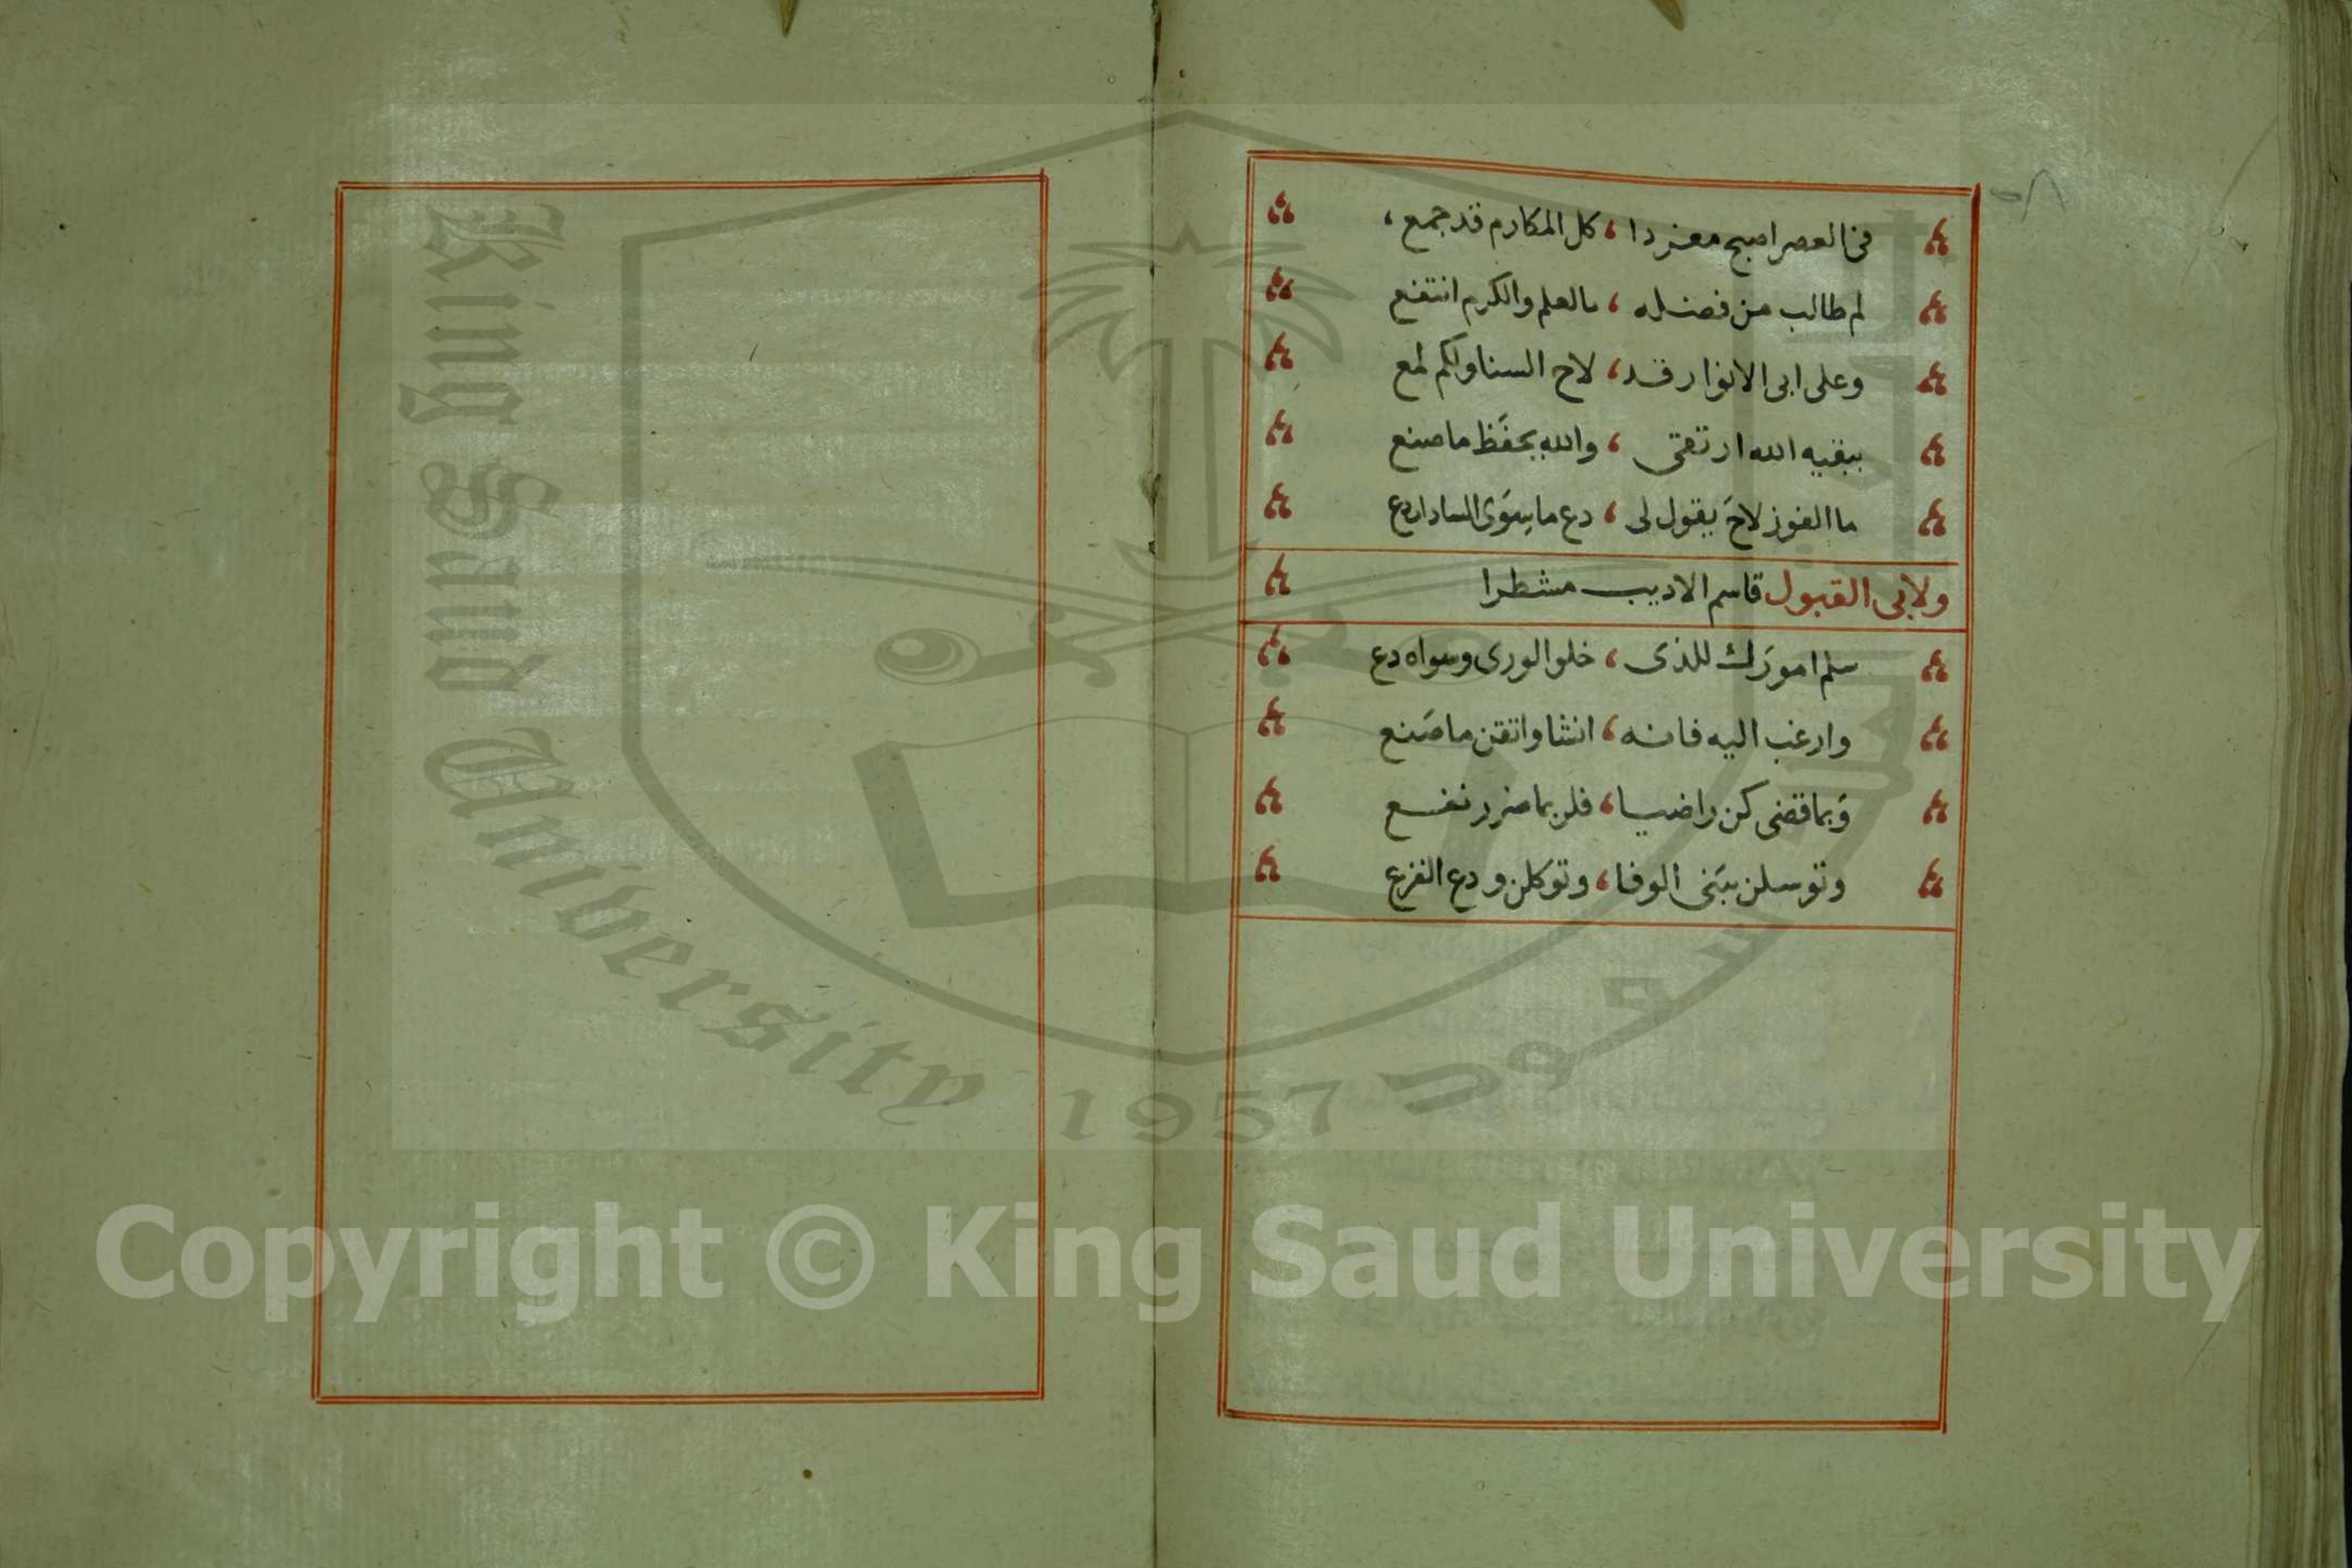 ٥٨
فى العصر اصبح مفردا ، كل المكارم قد جمع ،
لم طالب من فضله ، بالعلم والكرم انتفع
وعلى ابى الانوار قد ، لاح السنا ولكم لمع
يبقيه الله ارتقى ، والله يحفَظ ما صنع
ما الفوز لاحَ يقول لى ، دع ما سِوَى السادات دع
ولابى القبول قاسم الاديب مشطرا
سلم امورَك للذى ، خلق الورى وسواه دع
وارغب اليه فانه ، انشا واتقن ما صَنع
وَبما قضى كن راضيا ، فلربما ضرر نفع
وتوسلن ببَنى الوفا ، وتوكلن ودع الفزع
King Saud University
1957
Copyright © King Saud University